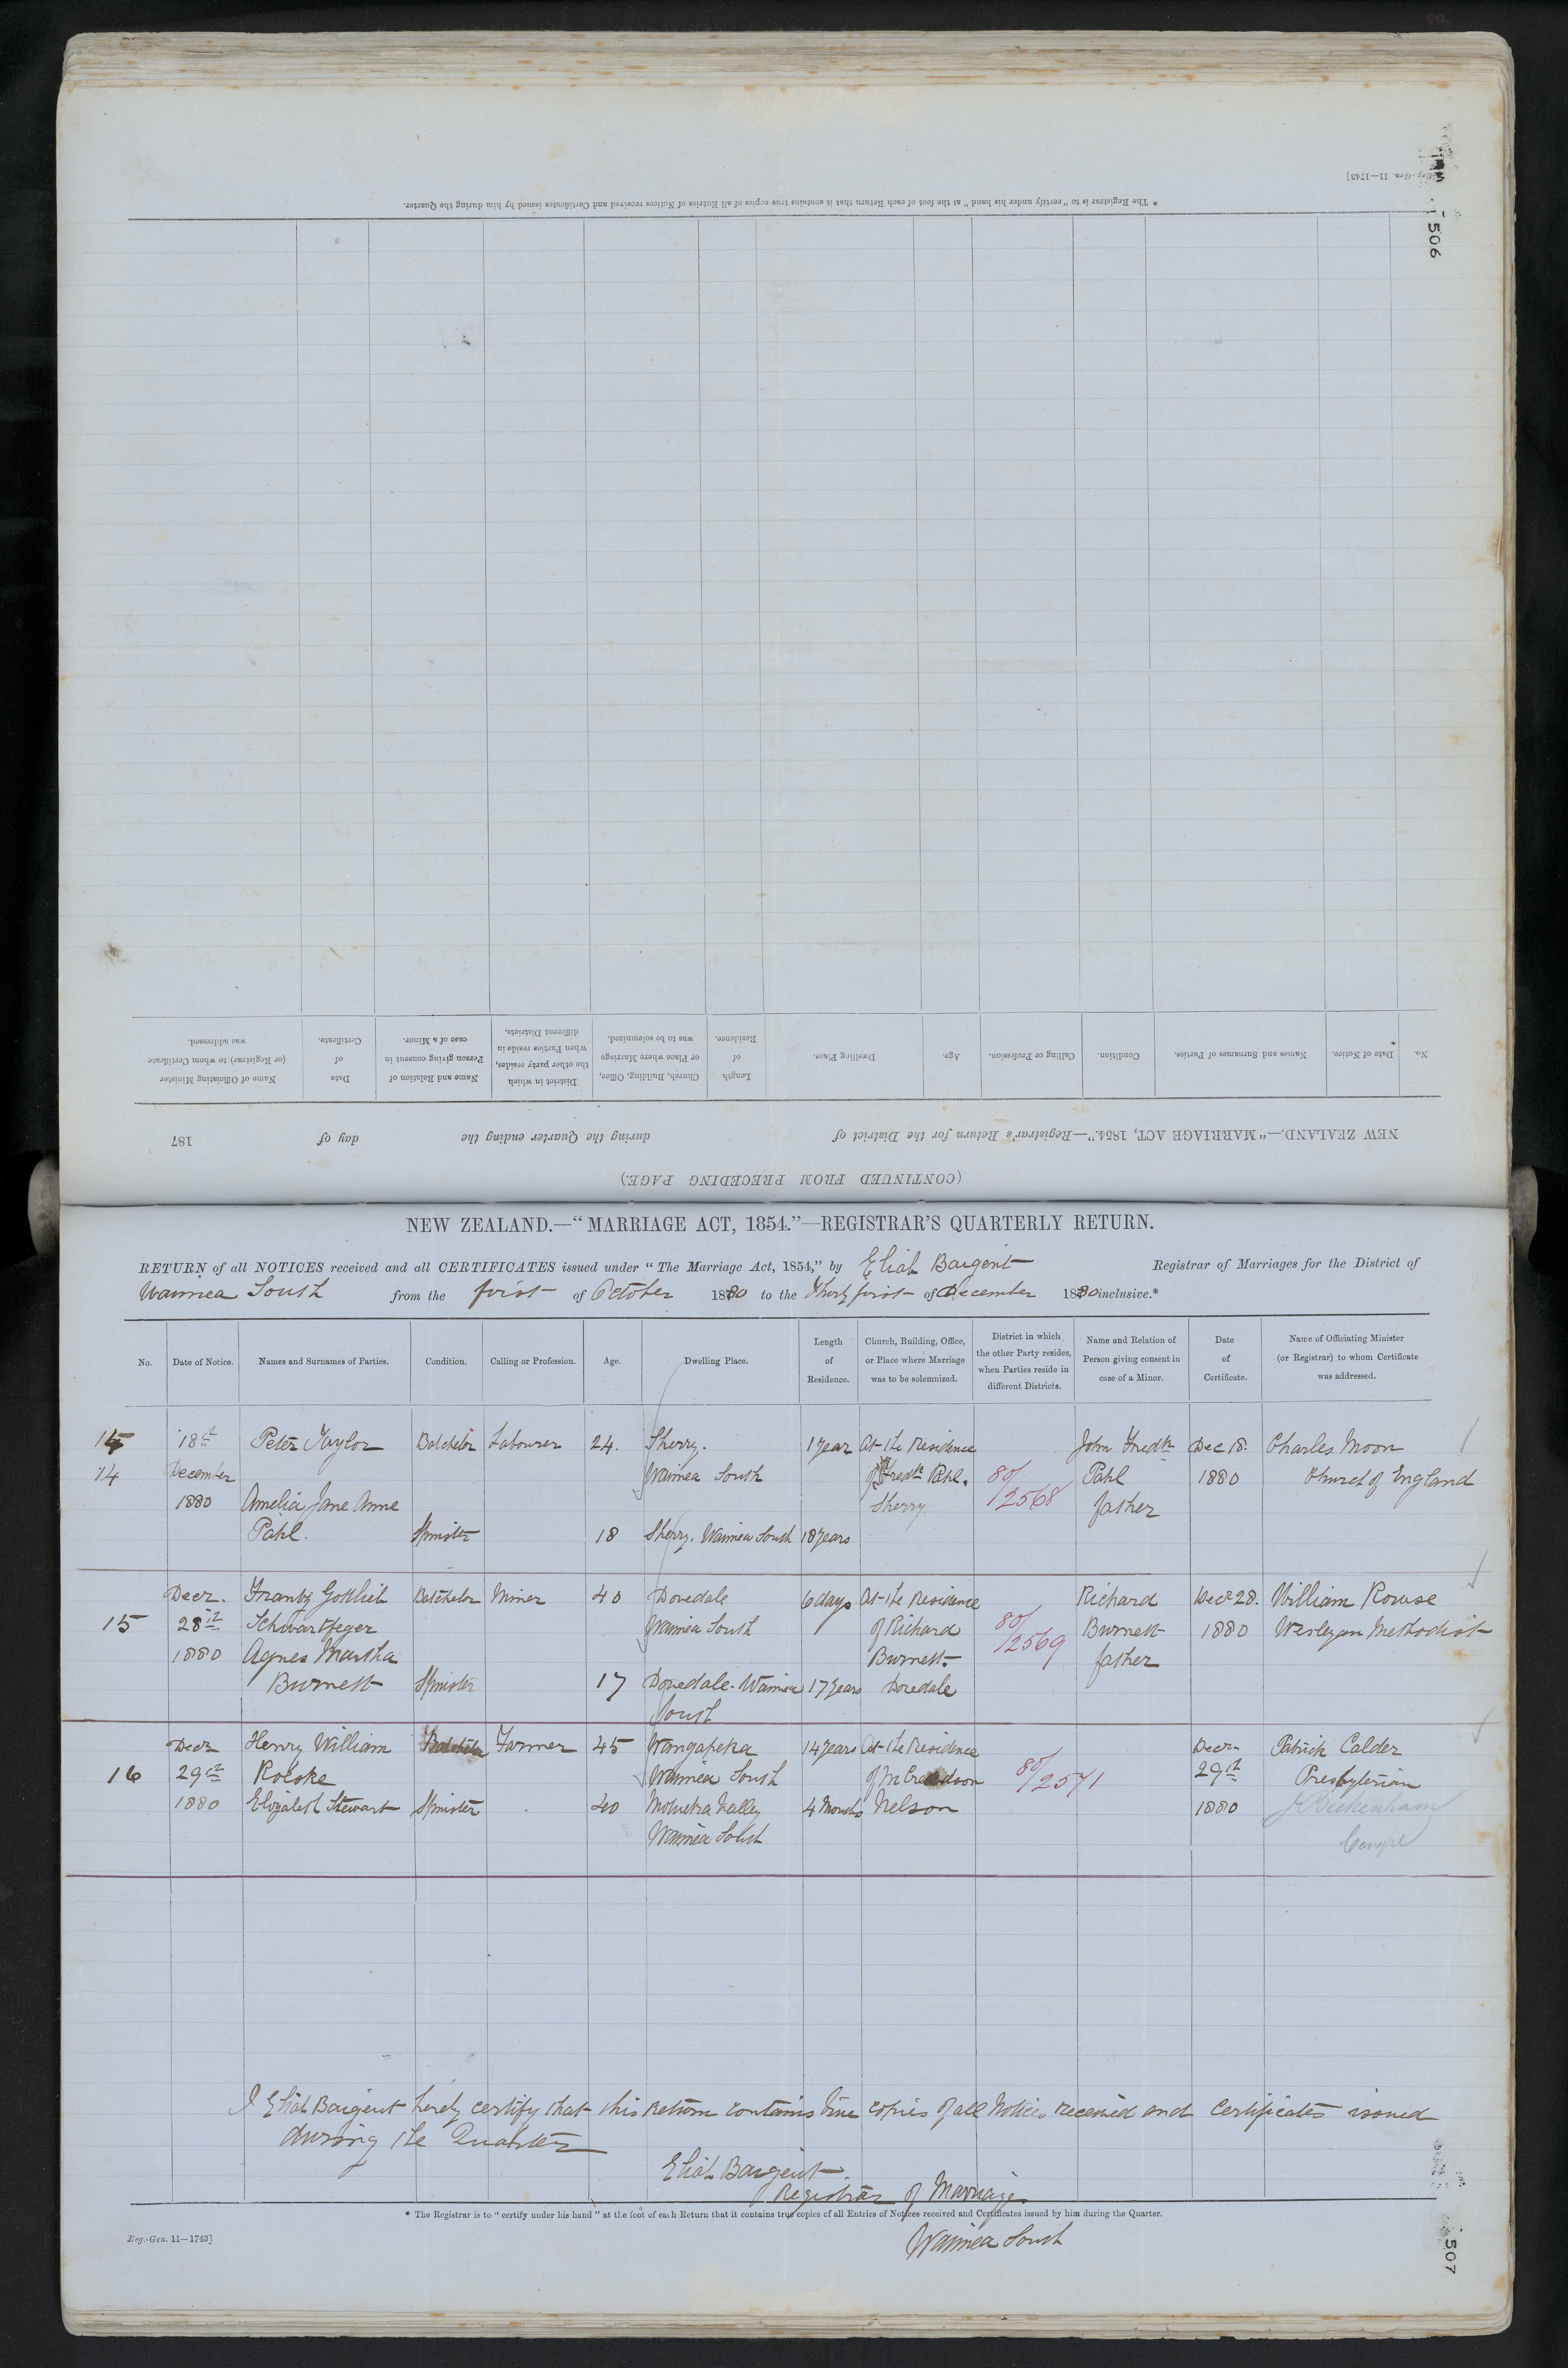 Reg.-Gen. 11—1743]
506
* The Registrar is to "certify under his hand" at the foot of each Return that it contains true copies of all Entries of Notices received and Certificates issued by him during the Quarter.
No.
Date of Notice.
Names and Surnames of Parties.
Condition.
Calling or Profession.
Age.
Dwelling Place.
Length
of
Residence.
Church, Building, Office,
or Place where Marriage
was to be solemnized.
District in which
the other party resides,
when Parties reside in
different Districts.
Name and Relation of
Person giving consent in
case of a Minor.
Date
of
Certificate.
Name of Officiating Minister
(or Registrar) to whom Certificate
was addressed.
NEW ZEALAND.—"MARRIAGE ACT, 1854."—Registrar's Return for the District of during the Quarter ending the day of 187
(CONTINUED FROM PRECEDING PAGE.)
NEW ZEALAND.—"MARRIAGE ACT, 1854."—REGISTRAR'S QUARTERLY RETURN.
RETURN of all NOTICES received and all CERTIFICATES issued under "The Marriage Act, 1854," by Eliah Baigent Registrar of Marriages for the District of
Waimea South from the first of October 1880 to the Thirty first of December 1880 inclusive.*
No.
Date of Notice.
Names and Surnames of Parties.
Condition.
Calling or Profession.
Age.
Dwelling Place.
Length
of
Residence.
Church, Building, Office,
or Place where Marriage
was to be solemnized.
District in which
the other Party resides,
when Parties reside in
different Districts.
Name and Relation of
Person giving consent in
case of a Minor.
Date
of
Certificate.
Name of Officiating Minister
(or Registrar) to whom Certificate
was addressed.
18th Peter Taylor Batchelor Labourer 24. Sherry. 1 year At the Residence John Fredk Dec 18. Charles Moon
14 December Waimea South of Fredk Pahl. 80/2568 Pahl 1880 Church of England
1880 Amelia Jane Anne Sherry father
Pahl. Spinster 18 Sherry. Waimea South 18 years
Decr. Frantz Gottlieb Batchelor Miner 40 Dovedale 6 days At the Residence Richard Decr 28. William Rowse
15 28th Schwartfeger Waimea South of Richard 80/2569 Burnett 1880 Wesleyan Methodist
1880 Agnes Martha Burnett. father
Burnett Spinster 17 Dovedale. Waimea 17 years Dovedale
South
Decr Henry William Batchelor Farmer 45 Wangapeka 14 years At the Residence Decr Patrick Calder
16 29th Roeske Waimea South of 80/2571 29th Presbyterian
1880 Elizabeth Stewart Spinster 40 Motueka Valley 4 Months Nelson 1880 J Bickenham
Waimea South
I Eliah Baigent hereby certify that this Return contains true copies of all Notices received and Certificates issued
during the Quarter
Eliah Baigent.
Registrar of Marriages
* The Registrar is to "certify under his hand" at the foot of each Return that it contains true copies of all Entries of Notices received and Certificates issued by him during the Quarter.
Reg.-Gen. 11—1743]
Waimea South
507